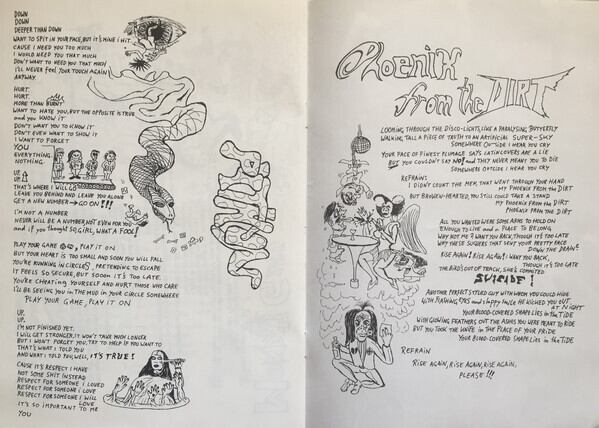 DOWN
DOWN
DEEPER THAN DOWN
WANT TO SPIT IN YOUR FACE, BUT IT'S MINE I HIT
CAUSE I NEED YOU TOO MUCH
I WOULD NEED YOU THAT MUCH
DON'T WANT TO NEED YOU THAT MUCH
I'LL NEVER FEEL YOUR TOUCH AGAIN
ANYWAY.
HURT.
HURT.
MORE THAN BURNT
WANT TO HATE YOU, BUT THE OPPOSITE IS TRUE
and you KNOW IT
DON'T WANT YOU TO KNOW IT
DON'T EVEN WANT TO SHOW IT
I WANT TO FORGET
YOU
EVERYTHING.
NOTHING.
UP.
UP
THAT'S WHERE I WILL GO
LEAVE YOU BEHIND AND LEAVE YOU ALONE
GET A NEW NUMBER GO ON!!!
I'M NOT A NUMBER
NEVER WILL BE A NUMBER NOT EVEN FOR YOU
and if you thought SO, GIRL, WHAT A FOOL!
PLAY YOUR GAME, PLAY IT ON
BUT YOUR HEART IS TOO SMALL AND SOON YOU WILL FALL
YOU'RE RUNNING IN CIRCLES, PRETENDING TO ESCAPE
IT FEELS SO SECURE, BUT SOOON IT'S TOO LATE
YOU'RE CHEATING YOURSELF AND HURT THOSE WHO CARE
I'LL BE SEEING YOU IN THE MUD IN YOUR CIRCLE SOMEWHERE
PLAY YOUR GAME, PLAY IT ON
UP.
UP.
I'M NOT FINISHED YET.
I WILL GET STRONGER, IT WON'T TAKE MUCH LONGER
BUT I WON'T FORGET YOU, TRY TO HELP IF YOU WANT TO
THAT'S WHAT I TOLD YOU
AND WHAT I TOLD YOU, WELL, IT'S TRUE!
CAUSE IT'S RESPECT I HAVE
NOT SOME SHIT INSTEAD
RESPECT FOR SOMEONE I LOVED
RESPECT FOR SOMEONE I LOVE
RESPECT FOR SOMEONE I WILL
LOVE
IT'S SO IMPORTANT TO ME
YOU
Phoenix
from the DIRT
LOOMING THROUGH THE DISCO-LIGHTS, LIKE A PARALYSING BUTTERFLY
WALKING TALL A PIECE OF TRUTH TO AN ARTIFICIAL SUPER-SKY
SOMEWHERE OUTSIDE I HEAR YOU CRY
YOUR FACE OF FINEST PLUMAGE SAYS CATIN LOVERS ARE A LIE
BUT YOU COULDN'T SAY NO! AND THEY NEVER MEANT YOU TO DIE
SOMEWHERE OUTSIDE I HEAR YOU CRY
REFRAIN:
I DIDN'T COUNT THE MEN, THAT WENT THROUGH YOUR HAND
MY PHOENIX FROM THE DIRT
BUT BROKEN-HEARTED, YOU STILL COULD TAKE A STAND
MY PHOENIX FROM THE DIRT
PHOENIX FROM THE DIRT
ALL YOU WANTED WERE SOME ARMS TO HOLD ON
ENOUGH TO LIVE and a PLACE TO BELONG
WHY NOT ME? I WANT YOU BACK, THOUGH IT'S TOO LATE
WHY THESE SUCKERS THAT SENT YOUR PRETTY FACE
DOWN THE DRAIN?
RISE AGAIN! RISE AGAIN! I WANT YOU BACK,
THOUGH IT'S TOO LATE
THE BIRD'S OUT OF TRACK, SHE'S COMMITED
SUICIDE!
ANOTHER PERFECT STYLED GUY WITH WHOM YOU COULD HIDE
WITH FLAMING EYES and sloppy tales HE KICKED YOU OUT
AT NIGHT
YOUR BLOOD-COVERED SHAPE LIES IN THE TIDE
WITH GLOWING FEATHERS OUT THE ASHES YOU WERE MEANT TO RIDE
BUT YOU TOOK THE KNIFE IN THE PLACE OF YOUR PRIDE
YOUR BLOOD-COVERED SHAPE LIES IN THE TIDE
REFRAIN
RISE AGAIN, RISE AGAIN, RISE AGAIN,
PLEASE!!!